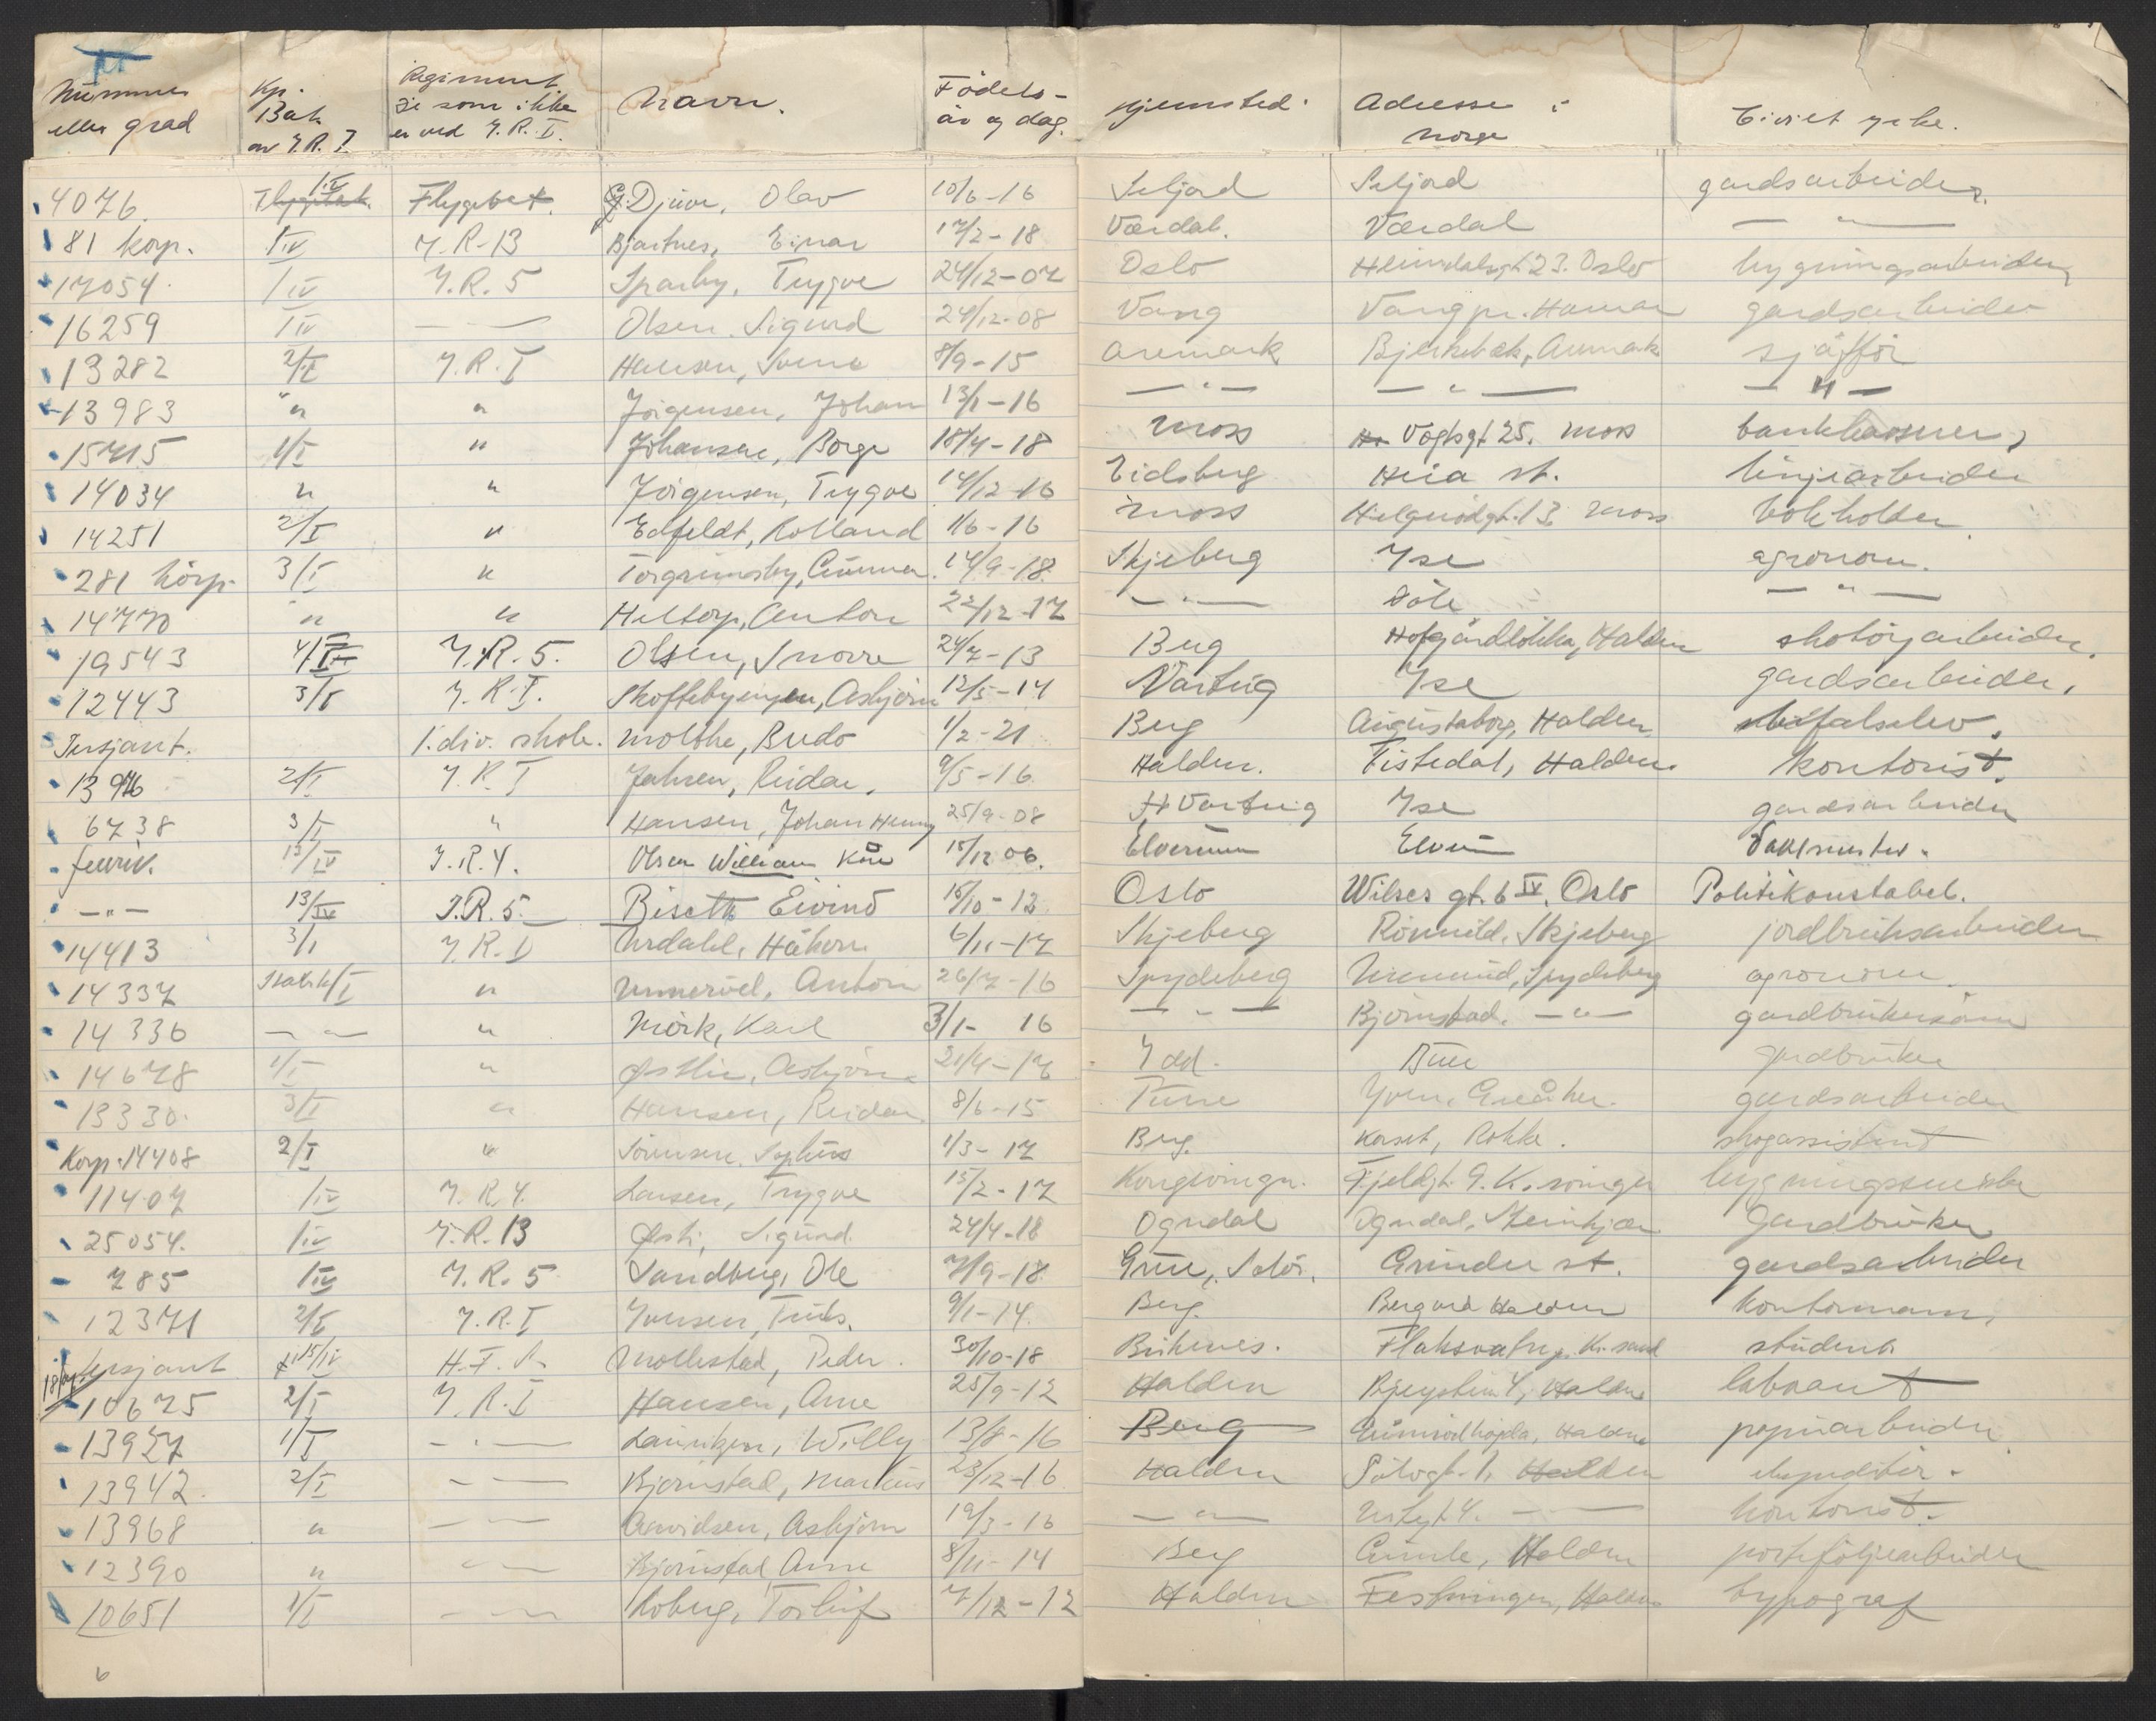 Nummer eller grad | Kp. Bat. av I.R. I | Regiment de som ikke er ved I.R. I. | Navn. | Födels- år og dag. | Hjemsted. | Adresse i Norge | Civilt yrke.
4076. | I IV | Flygebat. | Djuve, Olav | 10/6-16 | Seljord | Seljord | gardsarbeider.
81 korp. | I IV | I.R-13 | Bjartnes, Einar | 17/2-18 | Værdal. | Værdal | — " —
17054. | I IV | I.R. 5 | Sparby, Trygve | 24/12-07 | Oslo | Heimdalsgt 23. Oslo | bygningsarbeider
16259 | I IV | — " — | Olsen. Sigurd | 24/12-08 | Vang | Vang pr. Hamar | gardsarbeider
13282 | 2/I | I.R. I | Hansen, Svend | 8/9-15 | Aremark | Bjerkebæk, Aremark | sjåffør
13983 | " | " | Jörgensen, Johan | 13/1-16 | — " — | — " — | — " —
15715 | 1/I | " | Johansen, Borge | 18/4-18 | Moss | Vogtsgt 25. Moss | bankkasserer
14034 | " | " | Jörgensen, Trygve | 14/12-16 | Eidsberg | Heia st. | linjearbeider
14251 | 2/I | " | Edfeldt, Rolland | 1/6-16 | Moss | Helgerödgt. 13 Moss | bokholder
281 korp. | 3/I | " | Torgrimsby, Gunnar. | 14/9-18. | Skjeberg | Ise | agronom.
14770 | " | " | Heltorp, Anton | 22/12-17 | — " — | Döle | — " —
19543 | 4/I | I.R. 5. | Olsen, Snorre | 24/7-13 | Berg | Hofgårdlökka, Halden | skotöyarbeider.
12443 | 3/I | I.R. I. | Skoftebyengen, Asbjörn | 12/5-14 | Varteig | Ise | gardsarbeider.
Sersjant. | | 1. div. skole. | Molthe, Budo | 1/2-21 | Berg | Augustaborg, Halden | befalselev.
13976 | 2/I | I.R. I | Jahren, Reidar. | 9/5-16. | Halden. | Tistedal, Halden. | kontorist.
6738 | 3/I | " | Hansen, Johan Henry | 25/9-08 | Varteig | Ise | gardsarbeider
fenrik. | 13/IV | I.R. 4. | Olsen William Kåre | 15/12 06. | Elverum | Elverum | Vaktmester.
— " — | 13/IV | I.R. 5. | Biseth Eivind | 16/10-12 | Oslo | Wilses gt. 6 IV, Oslo | Politikonstabel.
14413 | 3/1 | I.R. I | Urdahl, Håkon | 6/11-17 | Skjeberg | Römmild, Skjeberg | jordbruksarbeider
14337 | Stabsk/I | " | Unneröd, Anton | 26/7-16 | Spydeberg | Spydeberg | agronom.
14336 | — " — | " | Mörk, Karl | 3/1-16 | — " — | Björnstad. — " — | gardbrukersönn
14678 | 1/I | " | Østlie, Asbjörn | 21/4-17 | Idd. | Buer | gardbruker
13330. | 3/I | " | Hansen, Reidar | 8/6-15 | Tune | Yven, Greåker. | gardsarbeider
Korp. 14408 | 2/I | " | Sörensen, Sophus | 1/3-17 | Berg. | Korset, Rokke. | skogassistent
11407 | I IV | I.R. 4. | Larsen, Trygve | 15/2-17 | Kongsvinger. | Fjeldgt. 9. K.svinger | bygningssnekker
25054. | I IV | I.R. 13 | Østli, Sigurd. | 24/4-18 | Ogndal | Ogndal, Steinkjær | Gardbruker
285 | I IV | I.R. 5 | Sandberg, Ole | 7/9-18 | Grue, Solör. | Grinder st. | gardsarbeider
12371 | 2/I | I.R. I | Iversen, Truls. | 9/1-14. | Berg. | Berg ved Halden | kontormann.
Sersjant | 15/IV | H.F. | Mollestad, Peder. | 30/10-18 | Birkenes. | Flaksvatn p. Kr.sand | student.
10675 | 2/I | I.R. I | Hansen, Arne | 25/9-12 | Halden | Halden | laborant
13957 | 1/I | — " — | Lauritzen, Willy | 13/8-16 | Berg | Gimrödhögda, Halden | papirarbeider
13942. | 2/I | — " — | Bjørnstad, Markus | 23/12-16 | Halden | Halden | ekspeditör.
13968 | " | — " — | Arvidsen, Asbjørn | 19/3-16 | — " — | — " — | kontorist.
12390 | " | — " — | Bjørnstad Arne | 8/11-14 | Berg | Gimle, Halden | porteföljearbeider
10651 | 1/I | — " — | Roberg, Torleif | 7/12-12 | Halden | Festningen, Halden | typograf
6